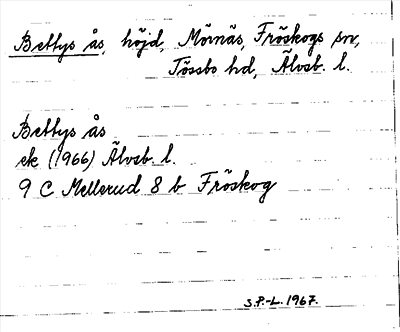 Bettys ås, höjd, Mörnäs, Fröskogs sn,
Tössbo hd, Älvsb. l.
Bettys ås
ek (1966) Älvsb. l.
9 C Mellerud 8 b Fröskog
S.P.-L. 1967.